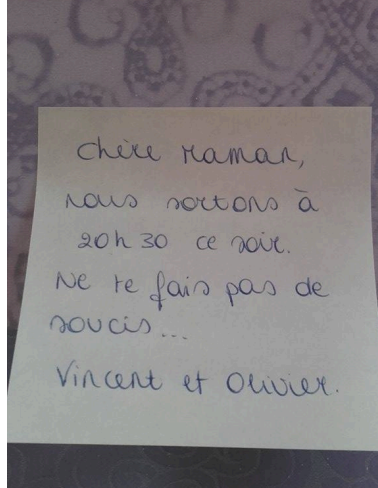 Chère Maman,
nous sortons à
20h30 ce soir.
Ne te fais pas de
soucis...
Vincent et Olivier.